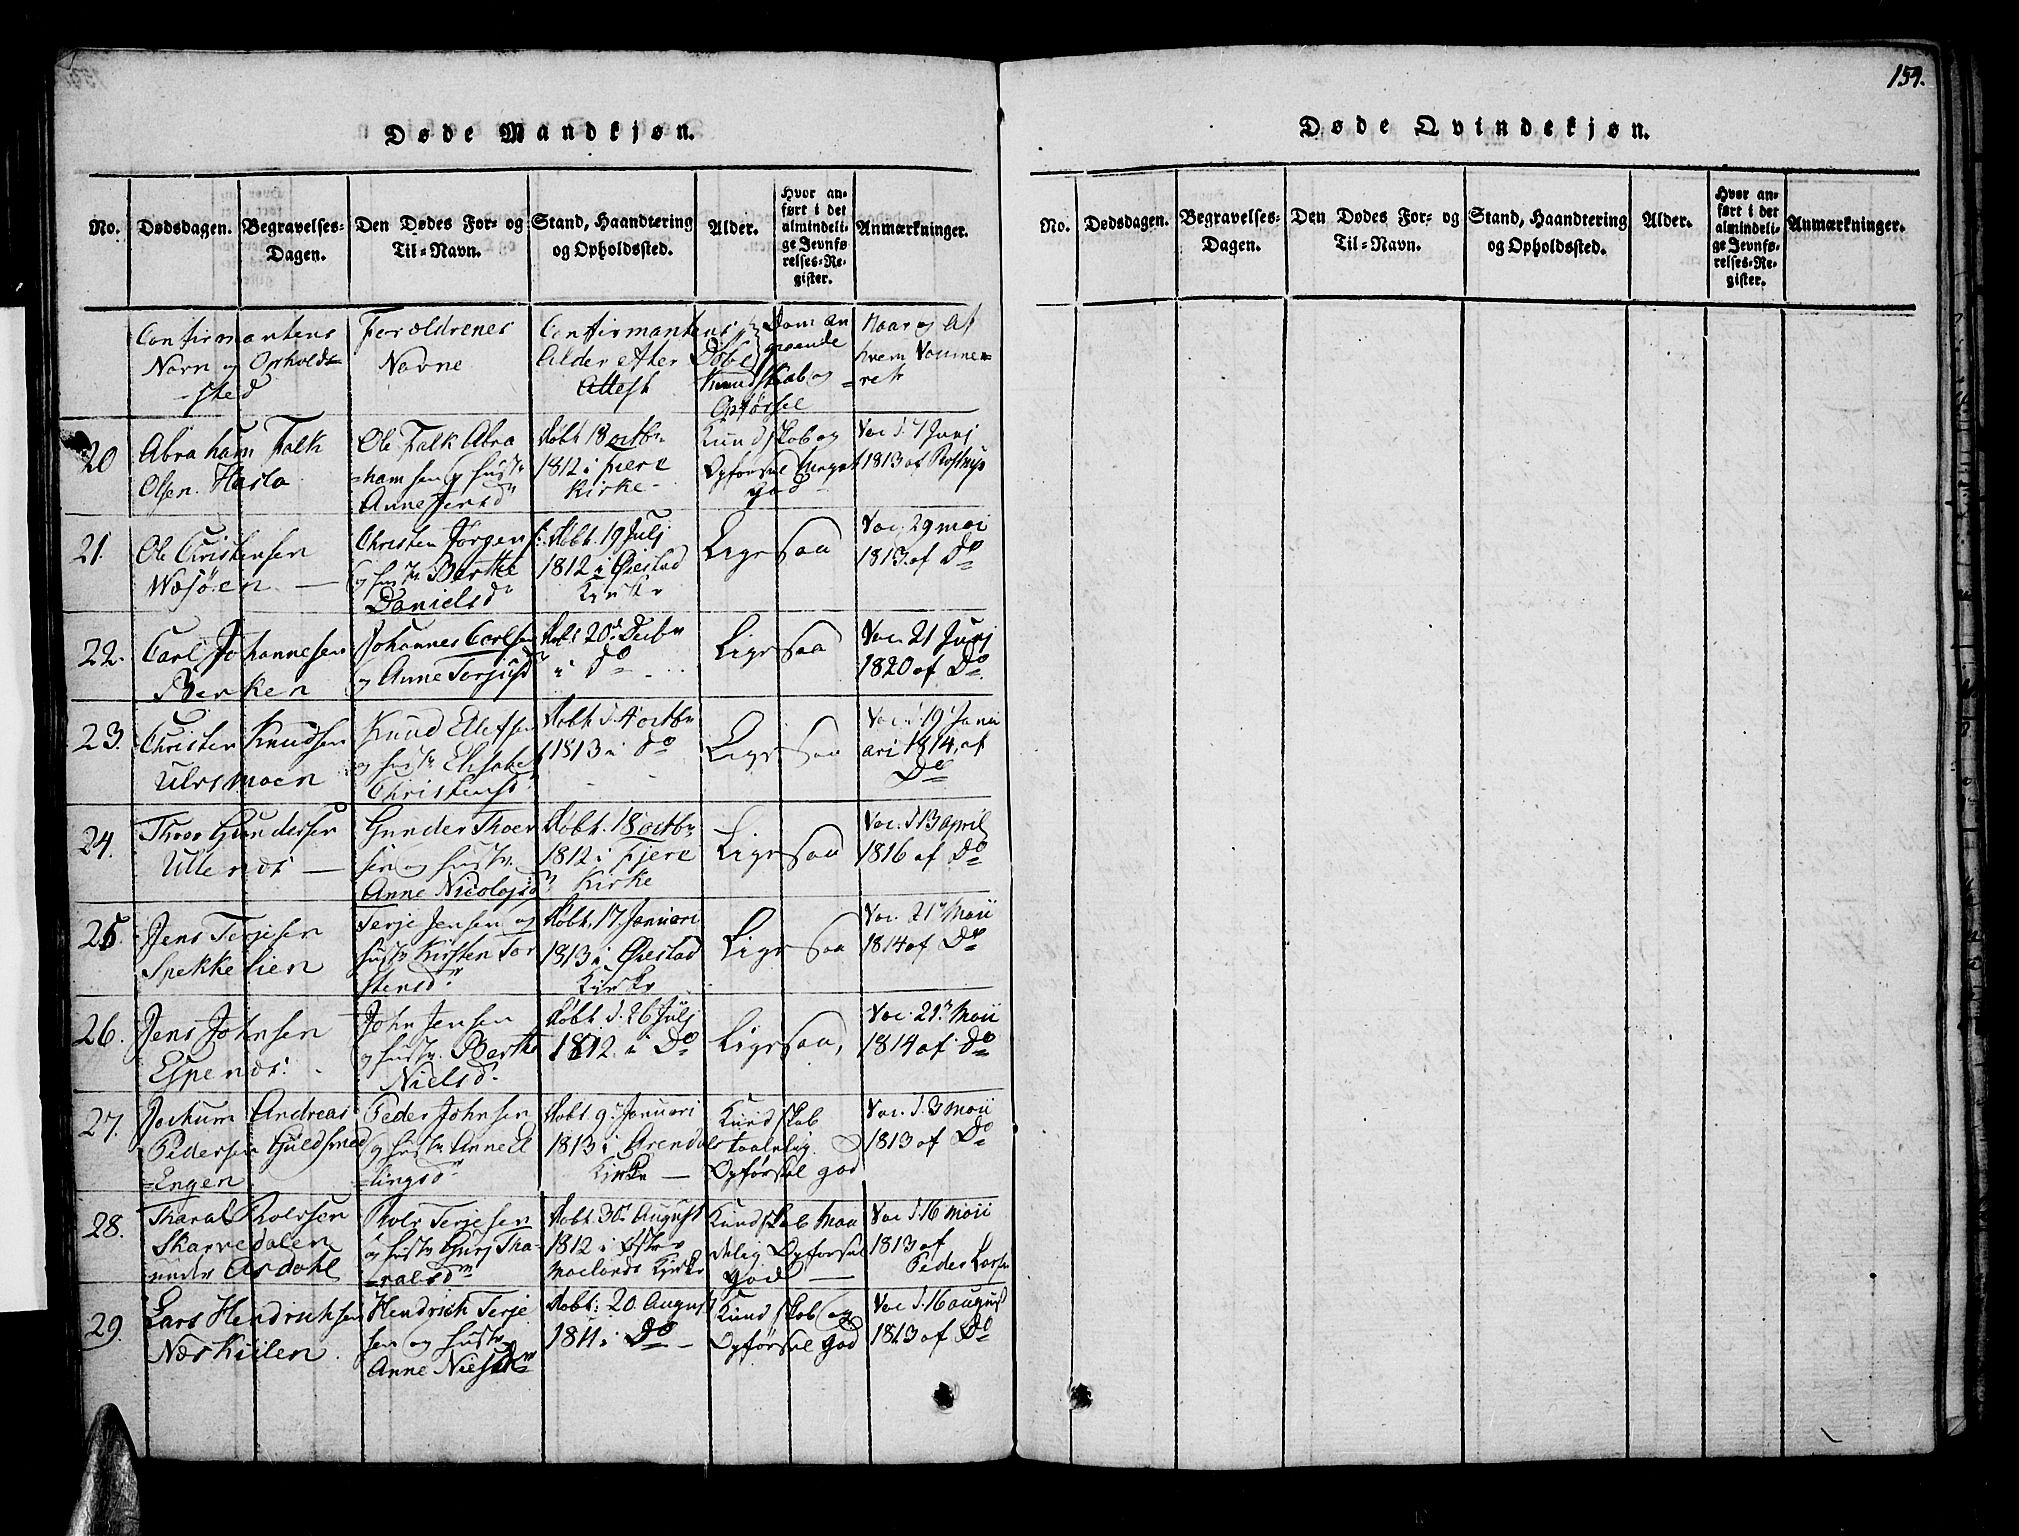 159.
Døde Mandkjøn.
No.
Dødsdagen.
Begravelses-
Dagen.
Den Dødes For- og
Til-Navn.
Stand, Haandtering
og Opholdssted.
Alder.
Hvor an-
ført i det
almindeli-
ge Jevnfø-
relses-Re-
gister.
Anmærkninger.
Confirmantens
Navn og Opholds-
-sted
Forældrenes
Navne
Confirmantens
Alder efter Døbe
Attest
Dom an
gaaende
Kundskab og
Opførsel
Naar og Af
hvem Vaccine-
=ret
20
Abraham Falk
Olsen. Hasla
Ole Falk Abra
=hamsen og hustr
Anne Jersd
døbt 18 octbr
1812 i Fiere
Kirke -
Kundskab og
Opførsel meget
god -
Vac. d. 7 Junj
1813 af Rostrup
21.
Ole Christensen
Wæsøen. —
Christen Jørgens:
og hustr Berthe
Danielsd
døbt. 19 Julj
1812 i Øiestad
Kirke
Ligesaa
Vac. 29 mai
1813. af Do
22.
Carl Johannesen
Berken
Johannes Carlsen
og Anne Torjusd
døbt 20d Decbr
i Do
Ligesaa
Vac. 21 Junj
1820 af Do
23.
Christen Knudsen
Ulvsmoen
Knud Ellefsen
og hustr Elisabet
Christensd
døbt d. 4 octbr
1813 i do
Ligesaa
Vac. d. 19 Janu
ari 1814, af
Do
24.
Thoer Gundersen
Ullenæs —
Gunder Thoer
sen og hustr.
Anne Nicolajsd
døbt. 18 octbr
1812 i Fjere
Kirke
Ligesaa
Vac. d 13 april
1816 af Do
25.
Jens Terjesen
Spekkelien
Terje Jensen og
hustr Kirsten Tor
stensd
døbt. 17 Januari
1813 i Øiestad
Kirke
Ligesaa
Vac. 21 Maii
1814 af Do
26.
Jens Johnsen
Espenæs.
John Jensen
og hustr. Berthe
Nielsd.
døbt d. 26 Julj
1812. i Do
Ligesaa,
Vac. 21. Maii
1814 af. Do
27.
Jochum Andreas
Pedersen Guldsmed
=Engen
Peder Johnsen
og hustr. Anne El
=lingsd
døbt. 9 Januari
1813 i Arendals
Kirke —
Kundskab
taalelig.
Opførsel god
Vac. d. 3 maii
1813 af Do
28.
Tharal Roersen
Skarvedalen
under Asdahl
Roer Terjesen
og hustr Gurj Tha-
=ralsd
døbt. 30 August
1812 i Østre
Moelands Kirke
Kundskab maa
delig Opførsel
god —
Vac d. 16 maii
1813 af
Peder Larsen
29.
Lars Hendrichsen
Næskiilen
Hendrich Terje
sen og hustr
Anne Nielsd
døbt: 20 August
1811 i Do —
Kundskab og
Opførsel god
Vac d. 16 august
1813 af Do
Døde Qvindekjøn.
No.
Dødsdagen.
Begravelses-
Dagen.
Den Dødes For- og
Til-Navn.
Stand, Haandtering
og Opholdssted.
Alder.
Hvor an-
ført i det
almindeli-
ge Jevnfø-
relses-Re-
gister.
Anmærkninger.